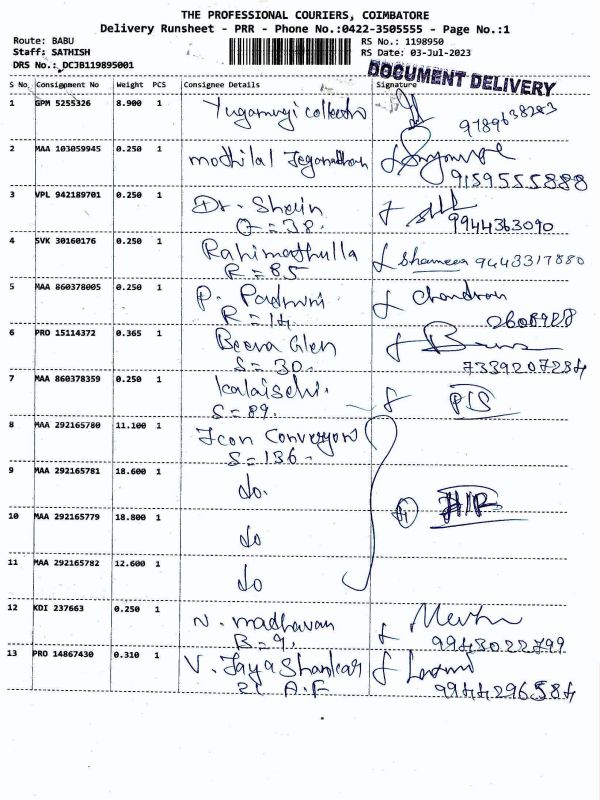 THE PROFESSIONAL COURIERS, COIMBATORE
Delivery Runsheet - PRR - Phone No.:0422-3505555 - Page No.:1
Route: BABU
Staff: SATHISH
DRS No.: DCJB119895001
RS No.: 1198950
RS Date: 03-Jul-2023
DOCUMENT DELIVERY
S No. Consignment No Weight PCS Consignee Details Signature
1 GPM 5255326 8.900 1
9789638243
2 MAA 103059945 0.250 1 mothilal Jeganathan
9159555888
3 VPL 942189701 0.250 1 Dr. Shain
O = 38.
9944363090
4 SVK 30160176 0.250 1 Rahimathulla Shameen 9443317880
R = 85
5 MAA 860378005 0.250 1 P. Padmini Chandran
R = 14
6 PRO 15114372 0.365 1 Beeva Glen
S = 30.
7339207284
7 MAA 860378359 0.250 1 Kalaiselvi.
S = 89.
8 MAA 292165780 11.100 1 Icon Conveyors
S = 136.
9 MAA 292165781 18.600 1 do.
10 MAA 292165779 18.800 1 do
11 MAA 292165782 12.600 1 do
12 KDI 237663 0.250 1 N. madhavan
B = 9.
9943022799
13 PRO 14867430 0.310 1 V. Jaya Shankar Laxmi
9944296584